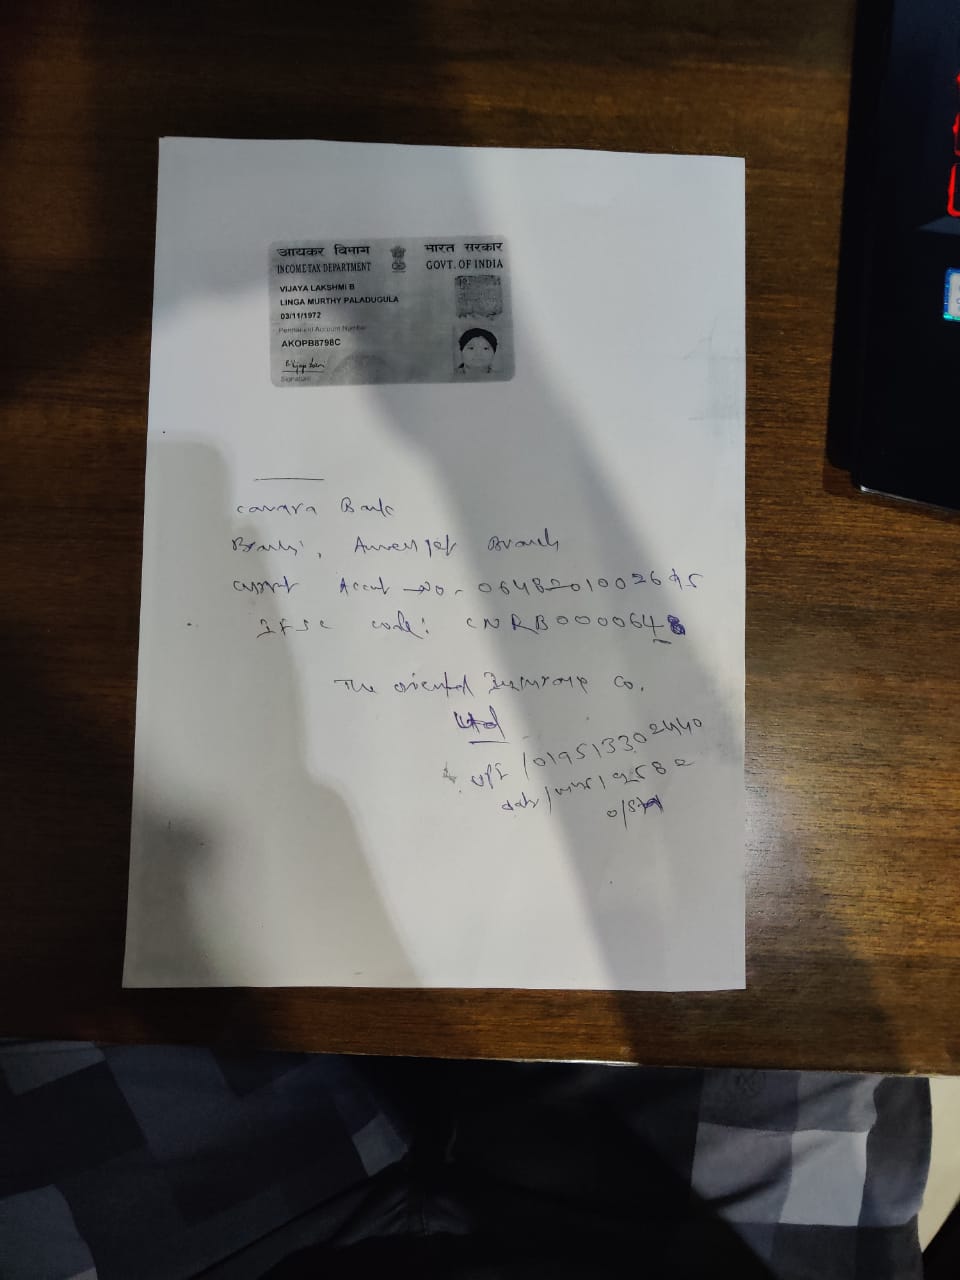 आयकर विभाग
INCOME TAX DEPARTMENT
भारत सरकार
GOVT. OF INDIA
VIJAYA LAKSHMI B
LINGA MURTHY PALADUGULA
03/11/1972
Permanent Account Number
AKOPB8798C
Signature
canara Bank
Branch: Branch
Account no - 
IFSC code: CNRB0000648
The oriental Insurance Co.
Ltd
UPI /019513302440